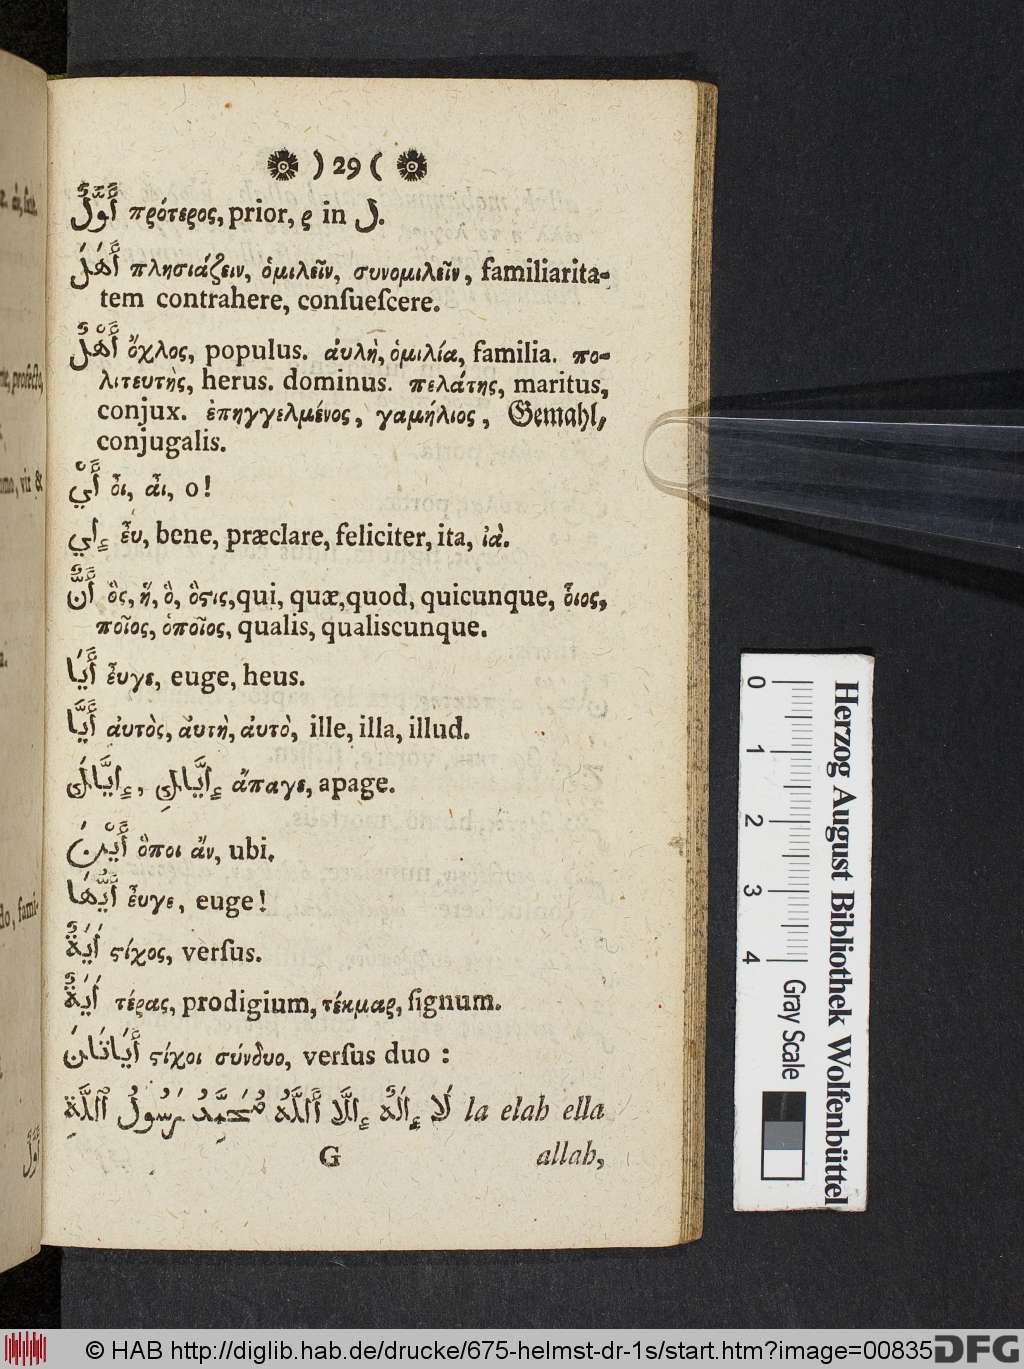 ) 29 (
أَوَّلٌ πρότερος, prior, ρ in ل.
أَهَلَ πλησιάζειν, ὁμιλεῖν, συνομιλεῖν, familiarita-
tem contrahere, conſueſcere.
أَهْلٌ ὄχλος, populus. ἀυλὴ, ὁμιλία, familia. πο-
λιτευτὴς, herus. dominus. πελάτης, maritus,
conjux. ἐπηγγελμένος, γαμήλιος, Gemahl,
conjugalis.
أَيْ οἶ, αἶ, o!
إِي ἖υ, bene, præclare, feliciter, ita, ἰὰ.
ὃς, ἥ, ὃ, ὃςις, qui, quæ, quod, quicunque, ὅιος,
ποῖος, ὁποῖος, qualis, qualiscunque.
أَيَا ἔυγε, euge, heus.
أَيَّا ἀυτὸς, ἄυτὴ, ἀυτὸ, ille, illa, illud.
إِيَّاكَ, إِيَّاكِ ἄπαγε, apage.
أَيْنَ ὅποι ἄν, ubi.
أَيُّهَا ἔυγε, euge!
أَيَةٌ ςίχος, verſus.
أَيَةٌ τέρας, prodigium, τέκμαρ, ſignum.
أَيَاتَانَ ςίχοι σύνδυο, verſus duo :
لَا إِلَهٌ إِلَّا أَللَّهُ مُحَمَّدُ رَسُولُ ٱللَّهِ la elah ella
G allah,
Herzog August Bibliothek Wolfenbüttel
0 1 2 3 4 Gray Scale
© HAB http://diglib.hab.de/drucke/675-helmst-dr-1s/start.htm?image=00835 DFG